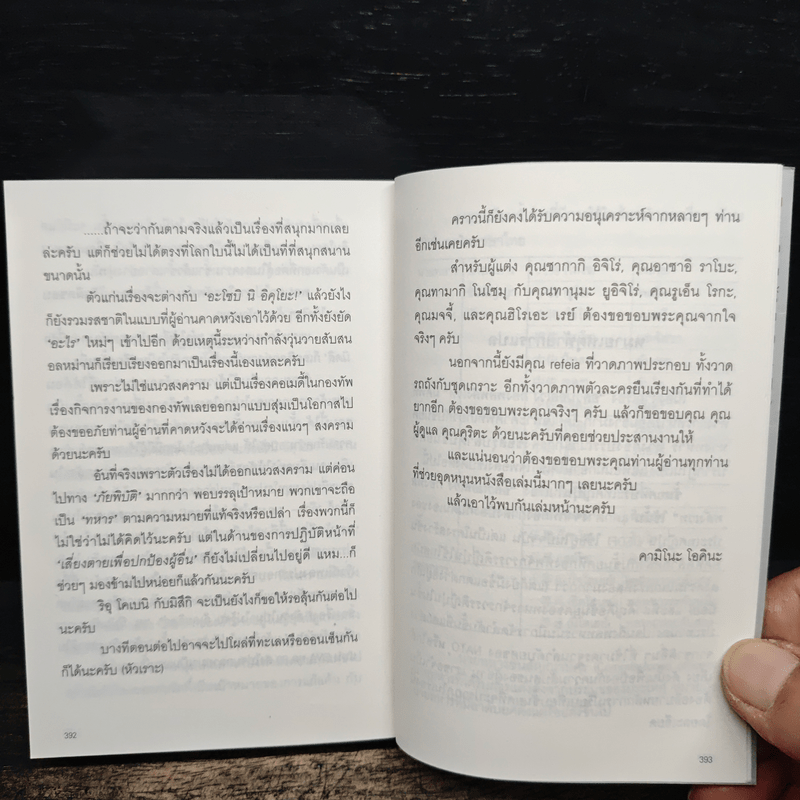 ......ถ้าจะว่ากันตามจริงแล้วเป็นเรื่องที่สนุกมากเลย
ล่ะครับ แต่ก็ช่วยไม่ได้ตรงที่โลกใบนี้ไม่ได้เป็นที่ที่สนุกสนาน
ขนาดนั้น
ตัวแก่นเรื่องจะต่างกับ ‘อะโซบิ นิ อิคุโยะ!’ แล้วยังไง
ก็ยังรวมรสชาติในแบบที่ผู้อ่านคาดหวังเอาไว้ด้วย อีกทั้งยังยัด
‘อะไร’ ใหม่ๆ เข้าไปอีก ด้วยเหตุนี้ระหว่างกำลังวุ่นวายสับสน
อลหม่านก็เรียบเรียงออกมาเป็นเรื่องนี้เองแหละครับ
เพราะไม่ใช่แนวสงคราม แต่เป็นเรื่องคอเมดี้ในกองทัพ
เรื่องกิจการงานของกองทัพเลยออกมาแบบสุ่มเป็นโอกาสไป
ต้องขออภัยท่านผู้อ่านที่คาดหวังจะได้อ่านเรื่องแนวๆ สงคราม
ด้วยนะครับ
อันที่จริงเพราะตัวเรื่องไม่ได้ออกแนวสงคราม แต่ค่อน
ไปทาง ‘ภัยพิบัติ’ มากกว่า พอบรรลุเป้าหมาย พวกเขาจะถือ
เป็น ‘ทหาร’ ตามความหมายที่แท้จริงหรือเปล่า เรื่องพวกนี้ก็
ไม่ใช่ว่าไม่ได้คิดไว้นะครับ แต่ในด้านของการปฏิบัติหน้าที่
‘เสี่ยงตายเพื่อปกป้องผู้อื่น’ ก็ยังไม่เปลี่ยนไปอยู่ดี แหม...ก็
ช่วยๆ มองข้ามไปหน่อยก็แล้วกันนะครับ
ริอุ โคเบนิ กับมิสึกิ จะเป็นยังไงก็ขอให้รอลุ้นกันต่อไป
นะครับ
บางทีตอนต่อไปอาจจะไปโผล่ที่ทะเลหรือออนเซ็นกัน
ก็ได้นะครับ (หัวเราะ)
392
คราวนี้ก็ยังคงได้รับความอนุเคราะห์จากหลายๆ ท่าน
อีกเช่นเคยครับ
สำหรับผู้แต่ง คุณซากากิ อิจิโร่, คุณอาซาอิ ราโบะ,
คุณทามากิ โนโซมุ กับคุณทานุมะ ยูอิจิโร่, คุณรูเอ็น โรกะ,
คุณมจจี้, และคุณฮิโรเอะ เรย์ ต้องขอขอบพระคุณจากใจ
จริงๆ ครับ
นอกจากนี้ยังมีคุณ refeia ที่วาดภาพประกอบ ทั้งวาด
รถถังกับชุดเกราะ อีกทั้งวาดภาพตัวละครยืนเรียงกันที่ทำได้
ยากอีก ต้องขอขอบพระคุณจริงๆ ครับ แล้วก็ขอขอบคุณ คุณ
ผู้ดูแล คุณคุริตะ ด้วยนะครับที่คอยช่วยประสานงานให้
และแน่นอนว่าต้องขอขอบพระคุณท่านผู้อ่านทุกท่าน
ที่ช่วยอุดหนุนหนังสือเล่มนี้มากๆ เลยนะครับ
แล้วเอาไว้พบกันเล่มหน้านะครับ
คามิโนะ โอคินะ
393